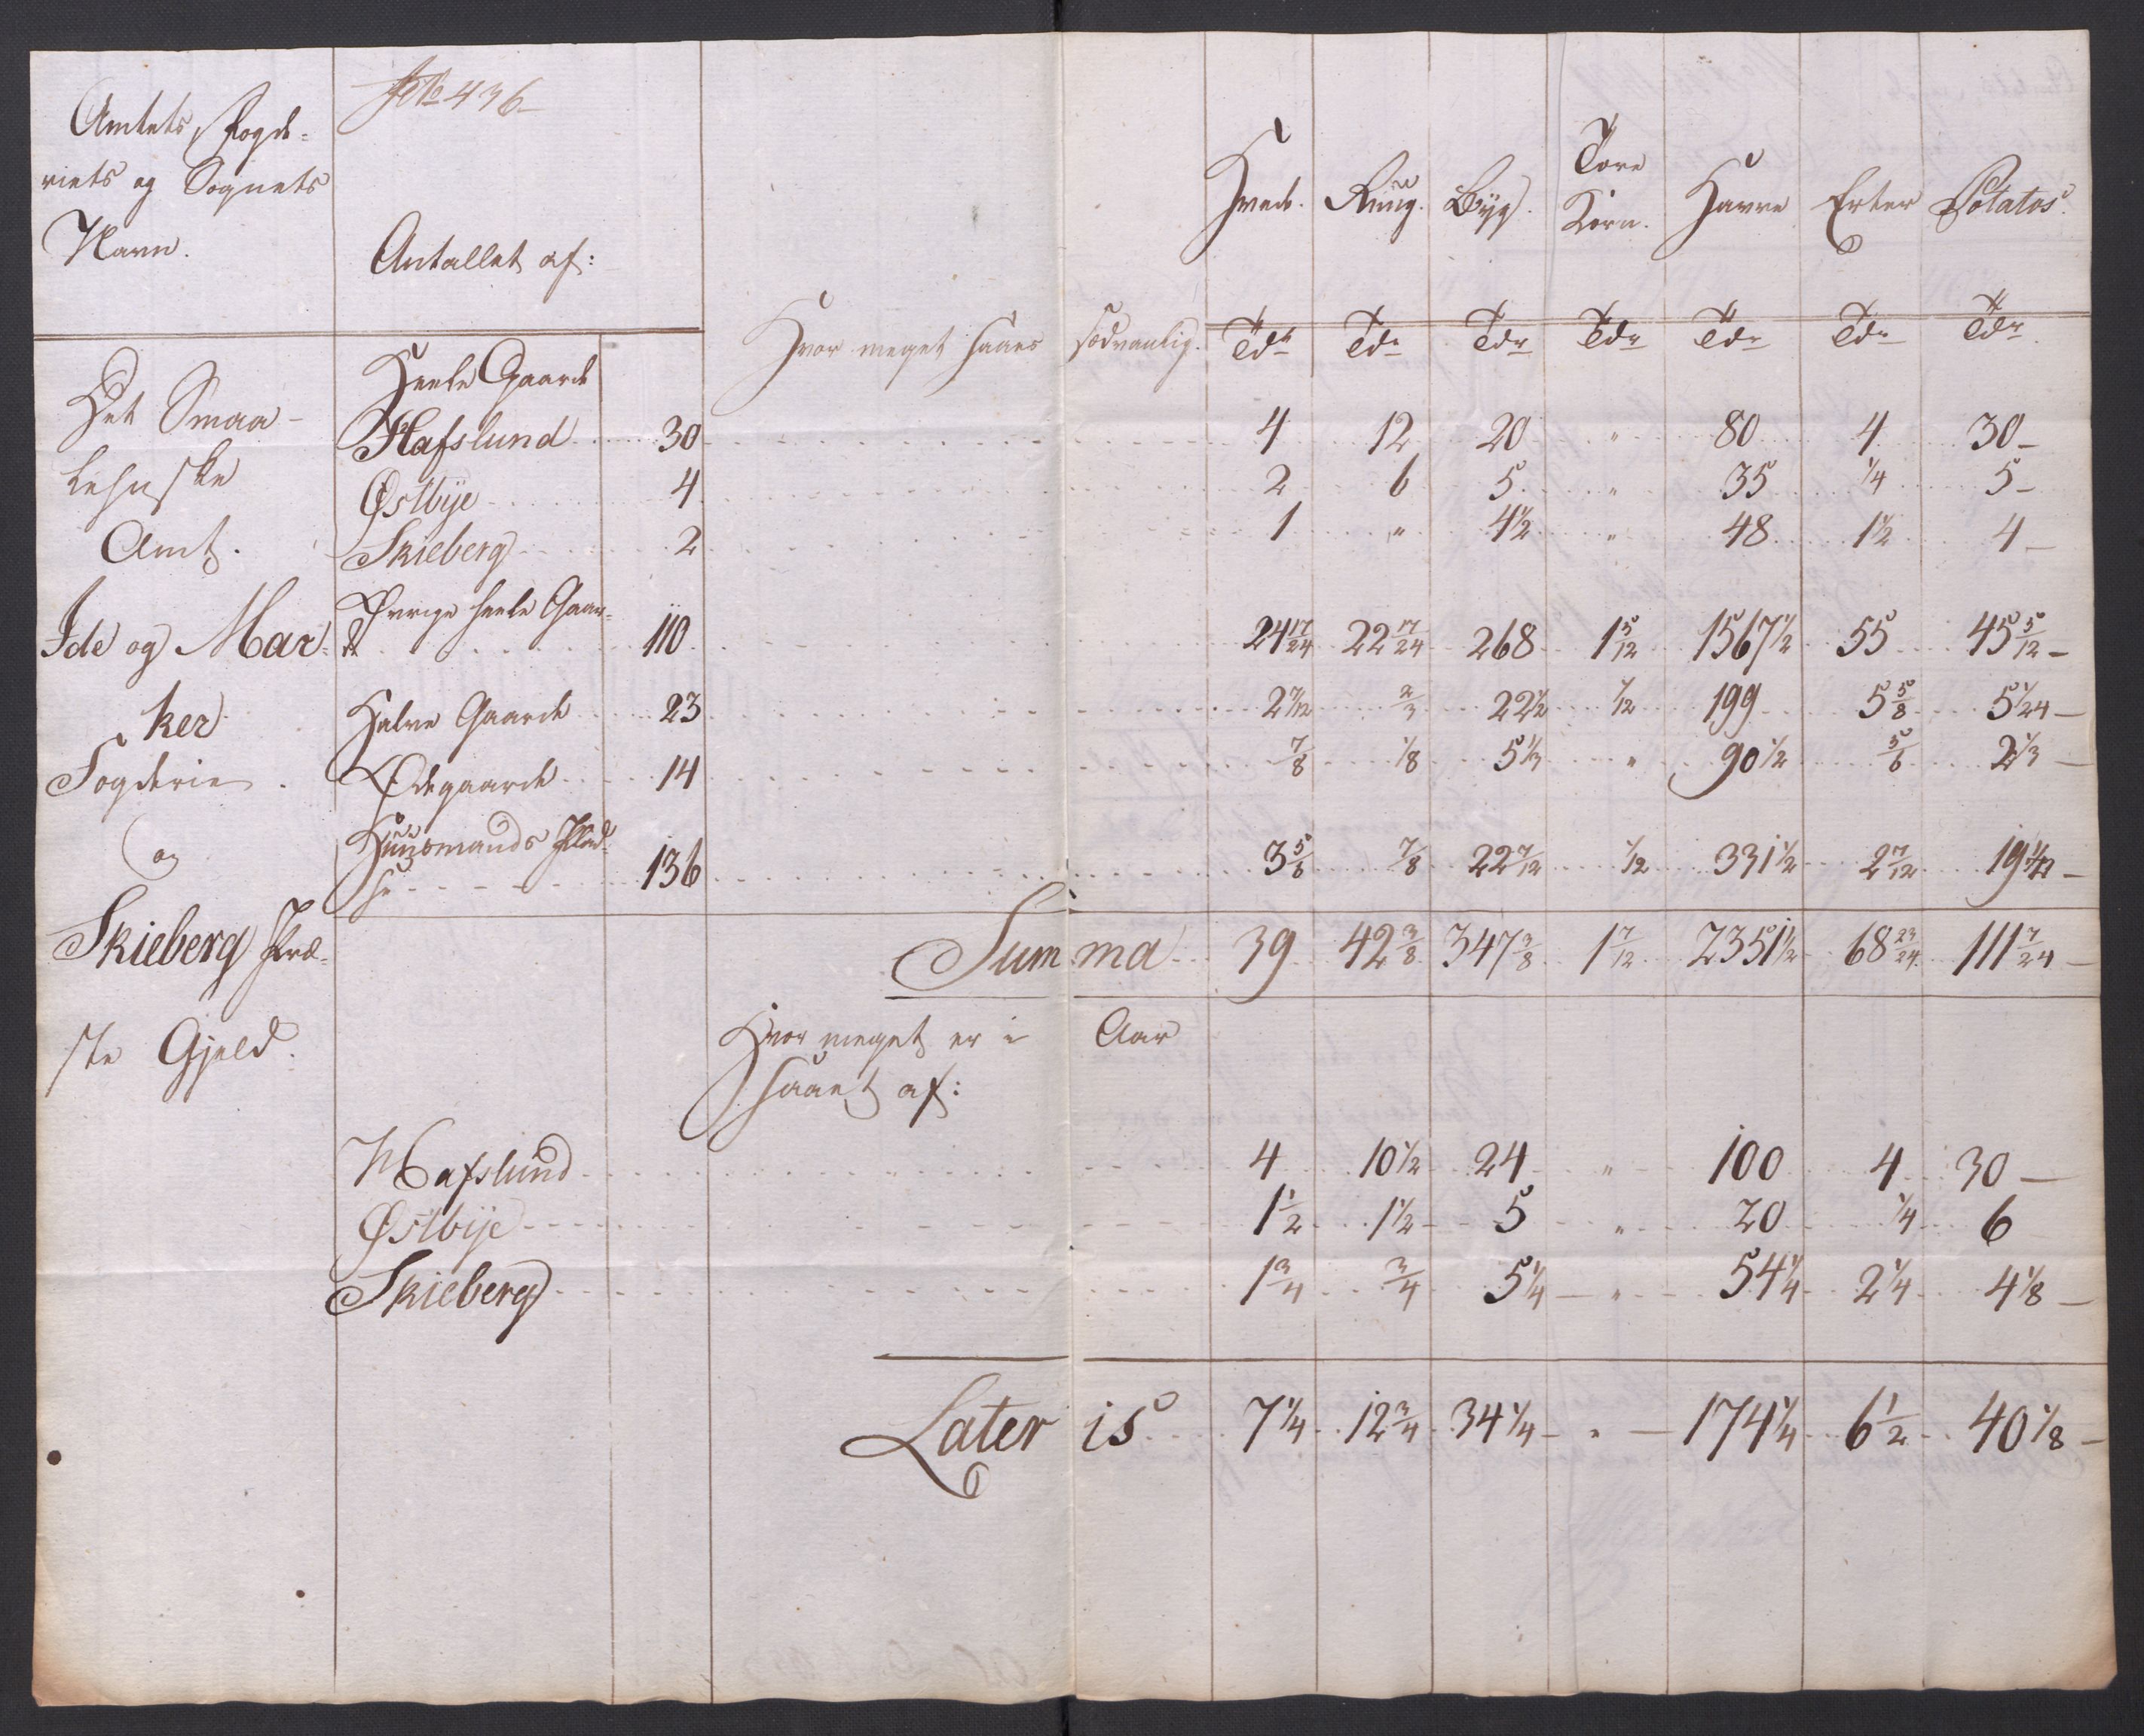 Amtets, Fogde-
riets og Sognets
Navn.
No 436
Antallet af:
Hvede. Rúúg. Býg. Tore Korn. Havre Erter Potatos.
Hvor meget saaes sædvanlig. Tdr Tdr Tdr Tdr Tdr Tdr Tdr
Det Smaa-
lehnske
Amt.
Ide og Mar-
ker
Fogderie.
og
Skieberg Præ-
ste Gjeld.
Heele Gaarde
Hafslund 30 4 12 20 " 80 4 30
Østbÿe 4 2 6 5 " 35 1/4 5
Skieberg 2 1 " 4 1/2 " 48 1 1/2 4
Øvrige heele Gaar-
de 110 24 17/24 22 17/24 268 1 5/12 1567 1/2 55 45 5/12
Halve Gaarde 23 2 7/12 2/3 22 1/2 1/12 199 5 5/8 5 1/24
Ødegaarde 14 7/8 1/8 5 1/3 " 90 1/2 5/6 2 1/3
Húúsmands Plad-
se 136 3 5/6 7/8 22 7/12 1/12 331 1/2 2 7/12 19 1/2
Summa 39 42 3/8 347 3/8 1 7/12 2351 1/2 68 23/24 111 7/24
Hvor meget er i Aar
saaet af:
Hafslund 4 10 1/2 24 " 100 4 30
Østbÿe 1 1/2 1 1/2 5 " 20 1/4 6
Skieberg 1 3/4 3/4 5 1/4 " 54 1/4 2 1/4 4 1/8
Lateris 7 1/4 12 3/4 34 1/4 " 174 1/4 6 1/2 40 1/8